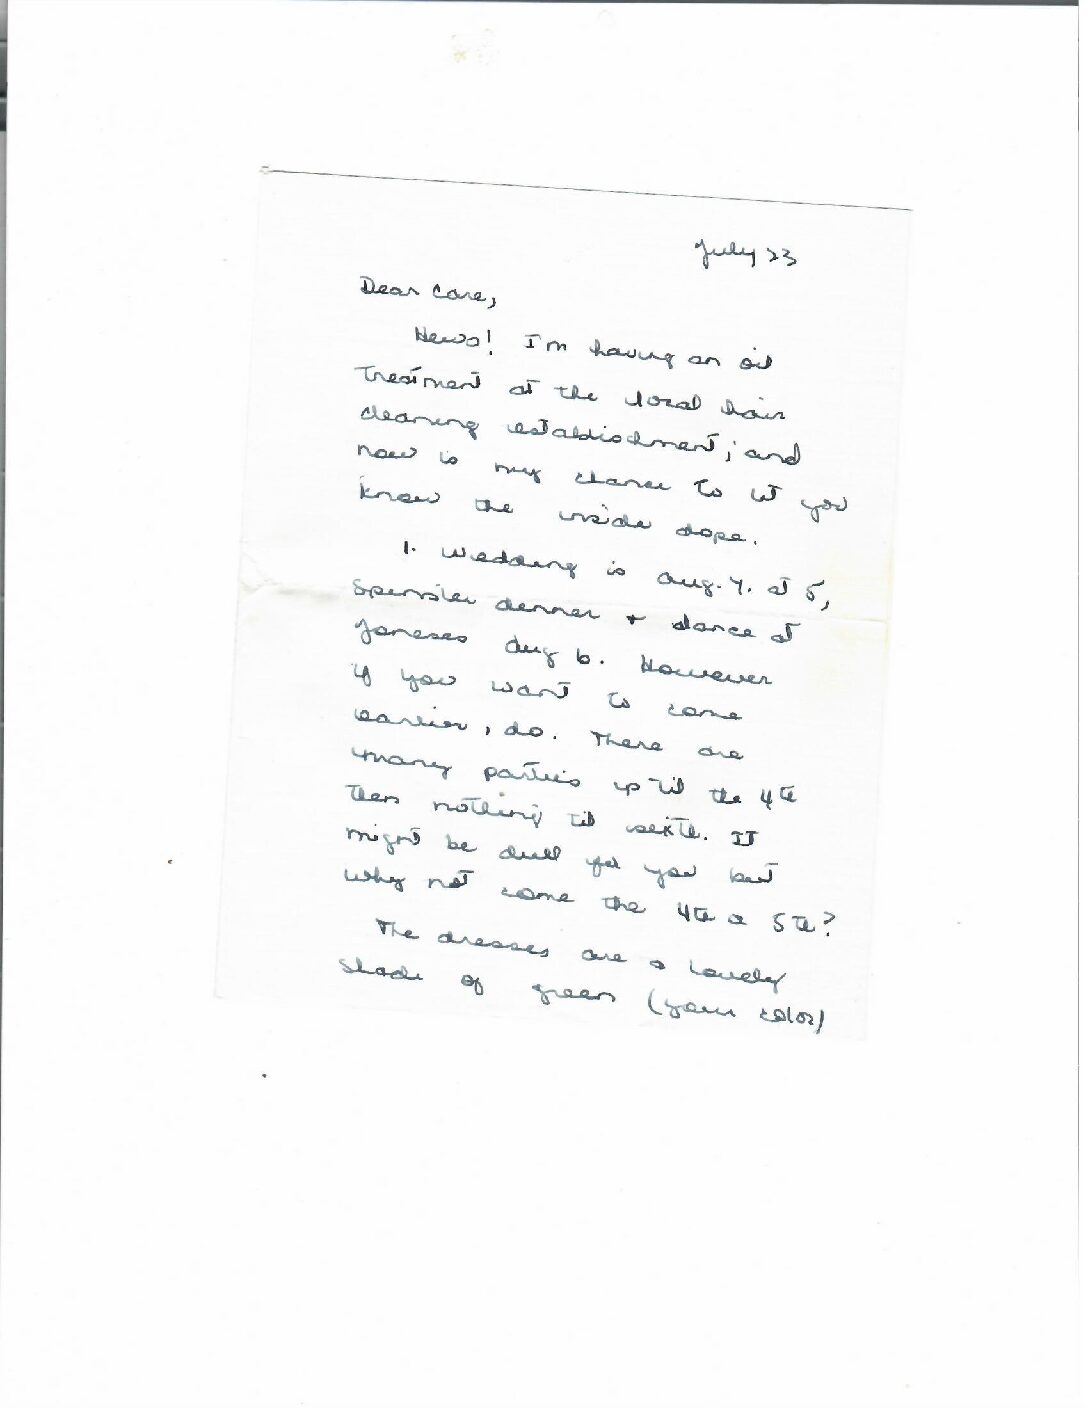 July 23
Dear Care,
News! I'm having an oil
treatment at the local hair
cleaning establishment; and
now is my chance to let you
know the inside dope.
1. Wedding is Aug. 7. at 5,
Spinster dinner + dance at
Joneses Aug 6. However
if you want to come
earlier, do. There are
many parties up 'til the 4th
then nothing til sixth. It
might be dull for you but
why not come the 4th or 5th?
The dresses are a lovely
shade of green (your color)